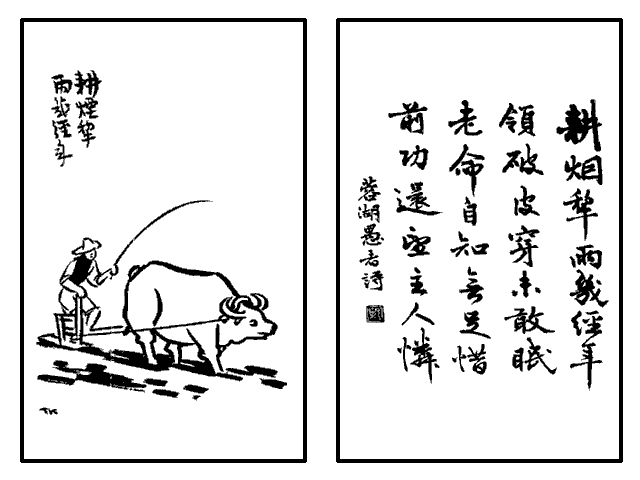 耕煙犂
雨幾經年
TK
耕烟犂雨幾經年
領破皮穿未敢眠
老命自知無足惜
前功還望主人憐
蓉湖愚者詩